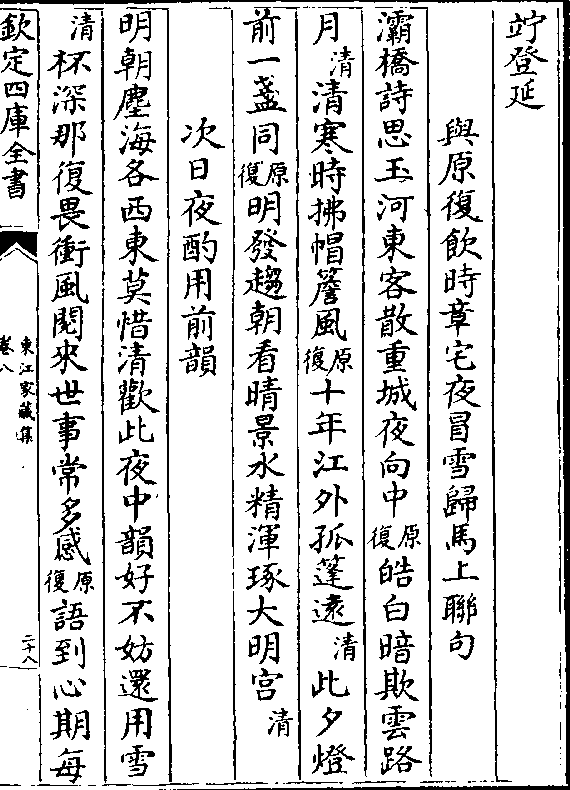 竚登延
與原復飲時章宅夜冒雪歸馬上聯句
灞橋詩思玉河東客散重城夜向中原復皓白暗欺雲路
月清清寒時拂帽簷風原復十年江外孤蓬遠清此夕燈
前一盞同原復明發趨朝看晴景水精渾琢大明宫清
次日夜酌用前韻
明朝塵海各西東莫惜清歡此夜中韻好不妨還用雪
清杯深那復畏衝風閱來世事常多感原復語到心期每
欽定四庫全書
東江家藏集
卷八
二十八